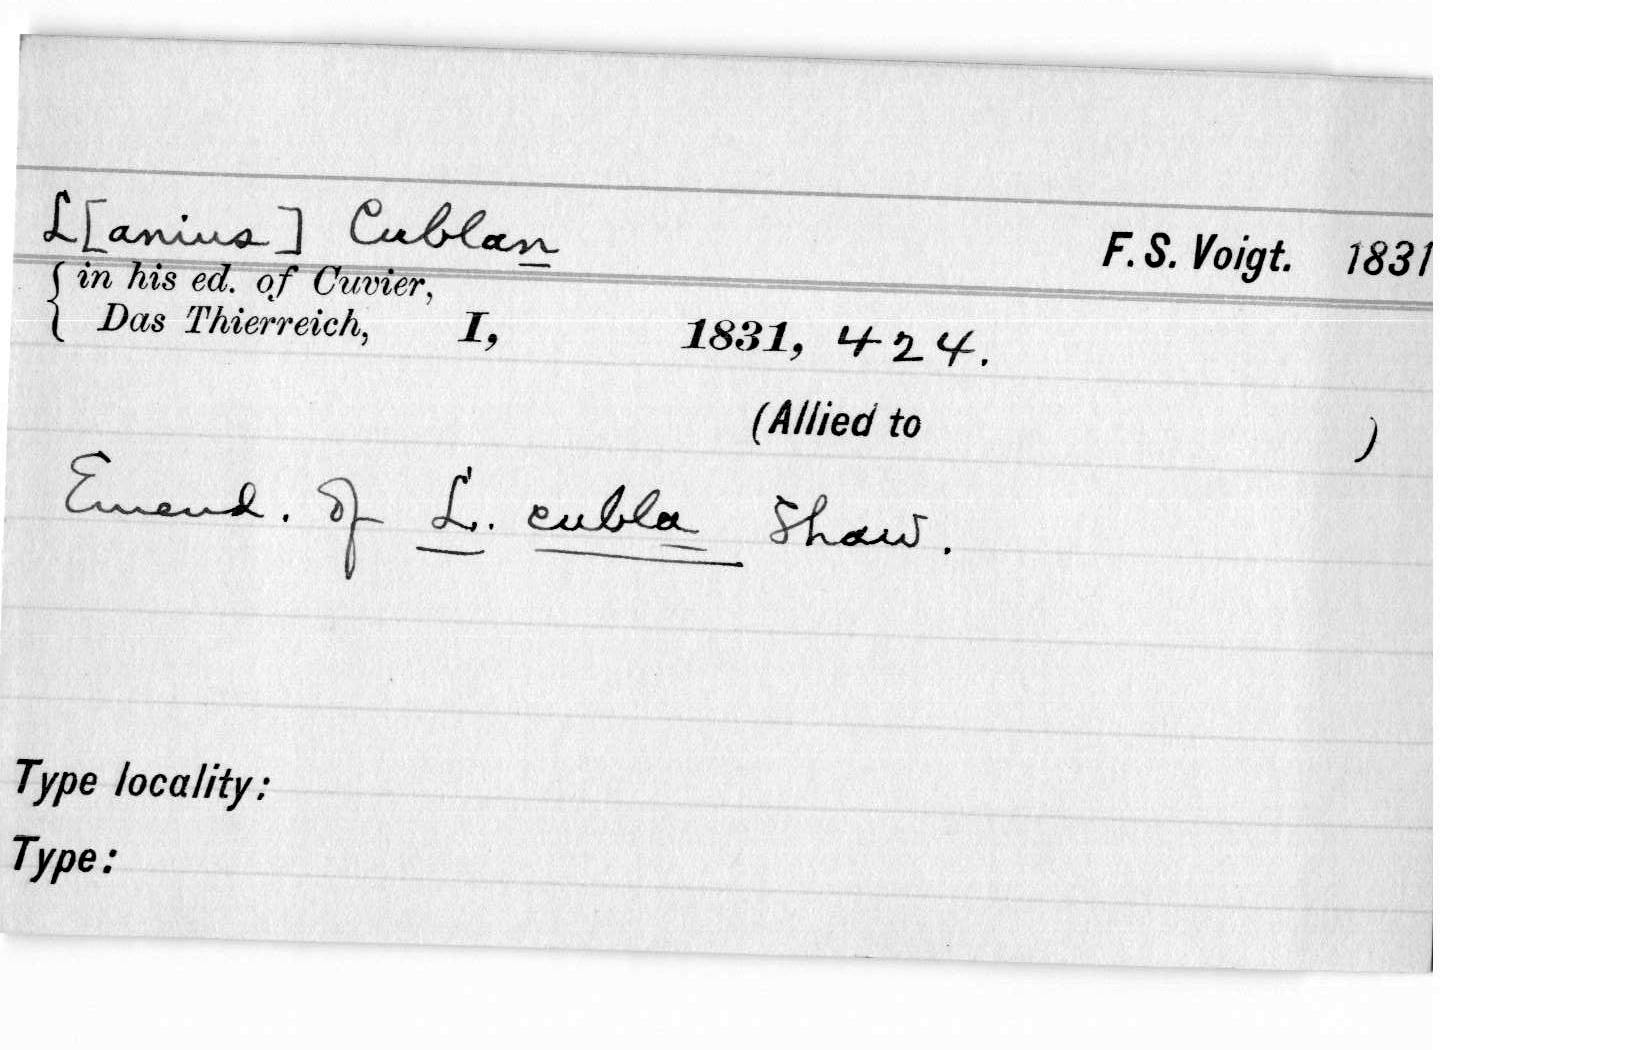 L[anius] Cublan F. S. Voigt. 1831
in his ed. of Cuvier,
Das Thierreich, I, 1831, 424.
(Allied to )
Emend. of L. cubla Shaw.
Type locality:
Type: